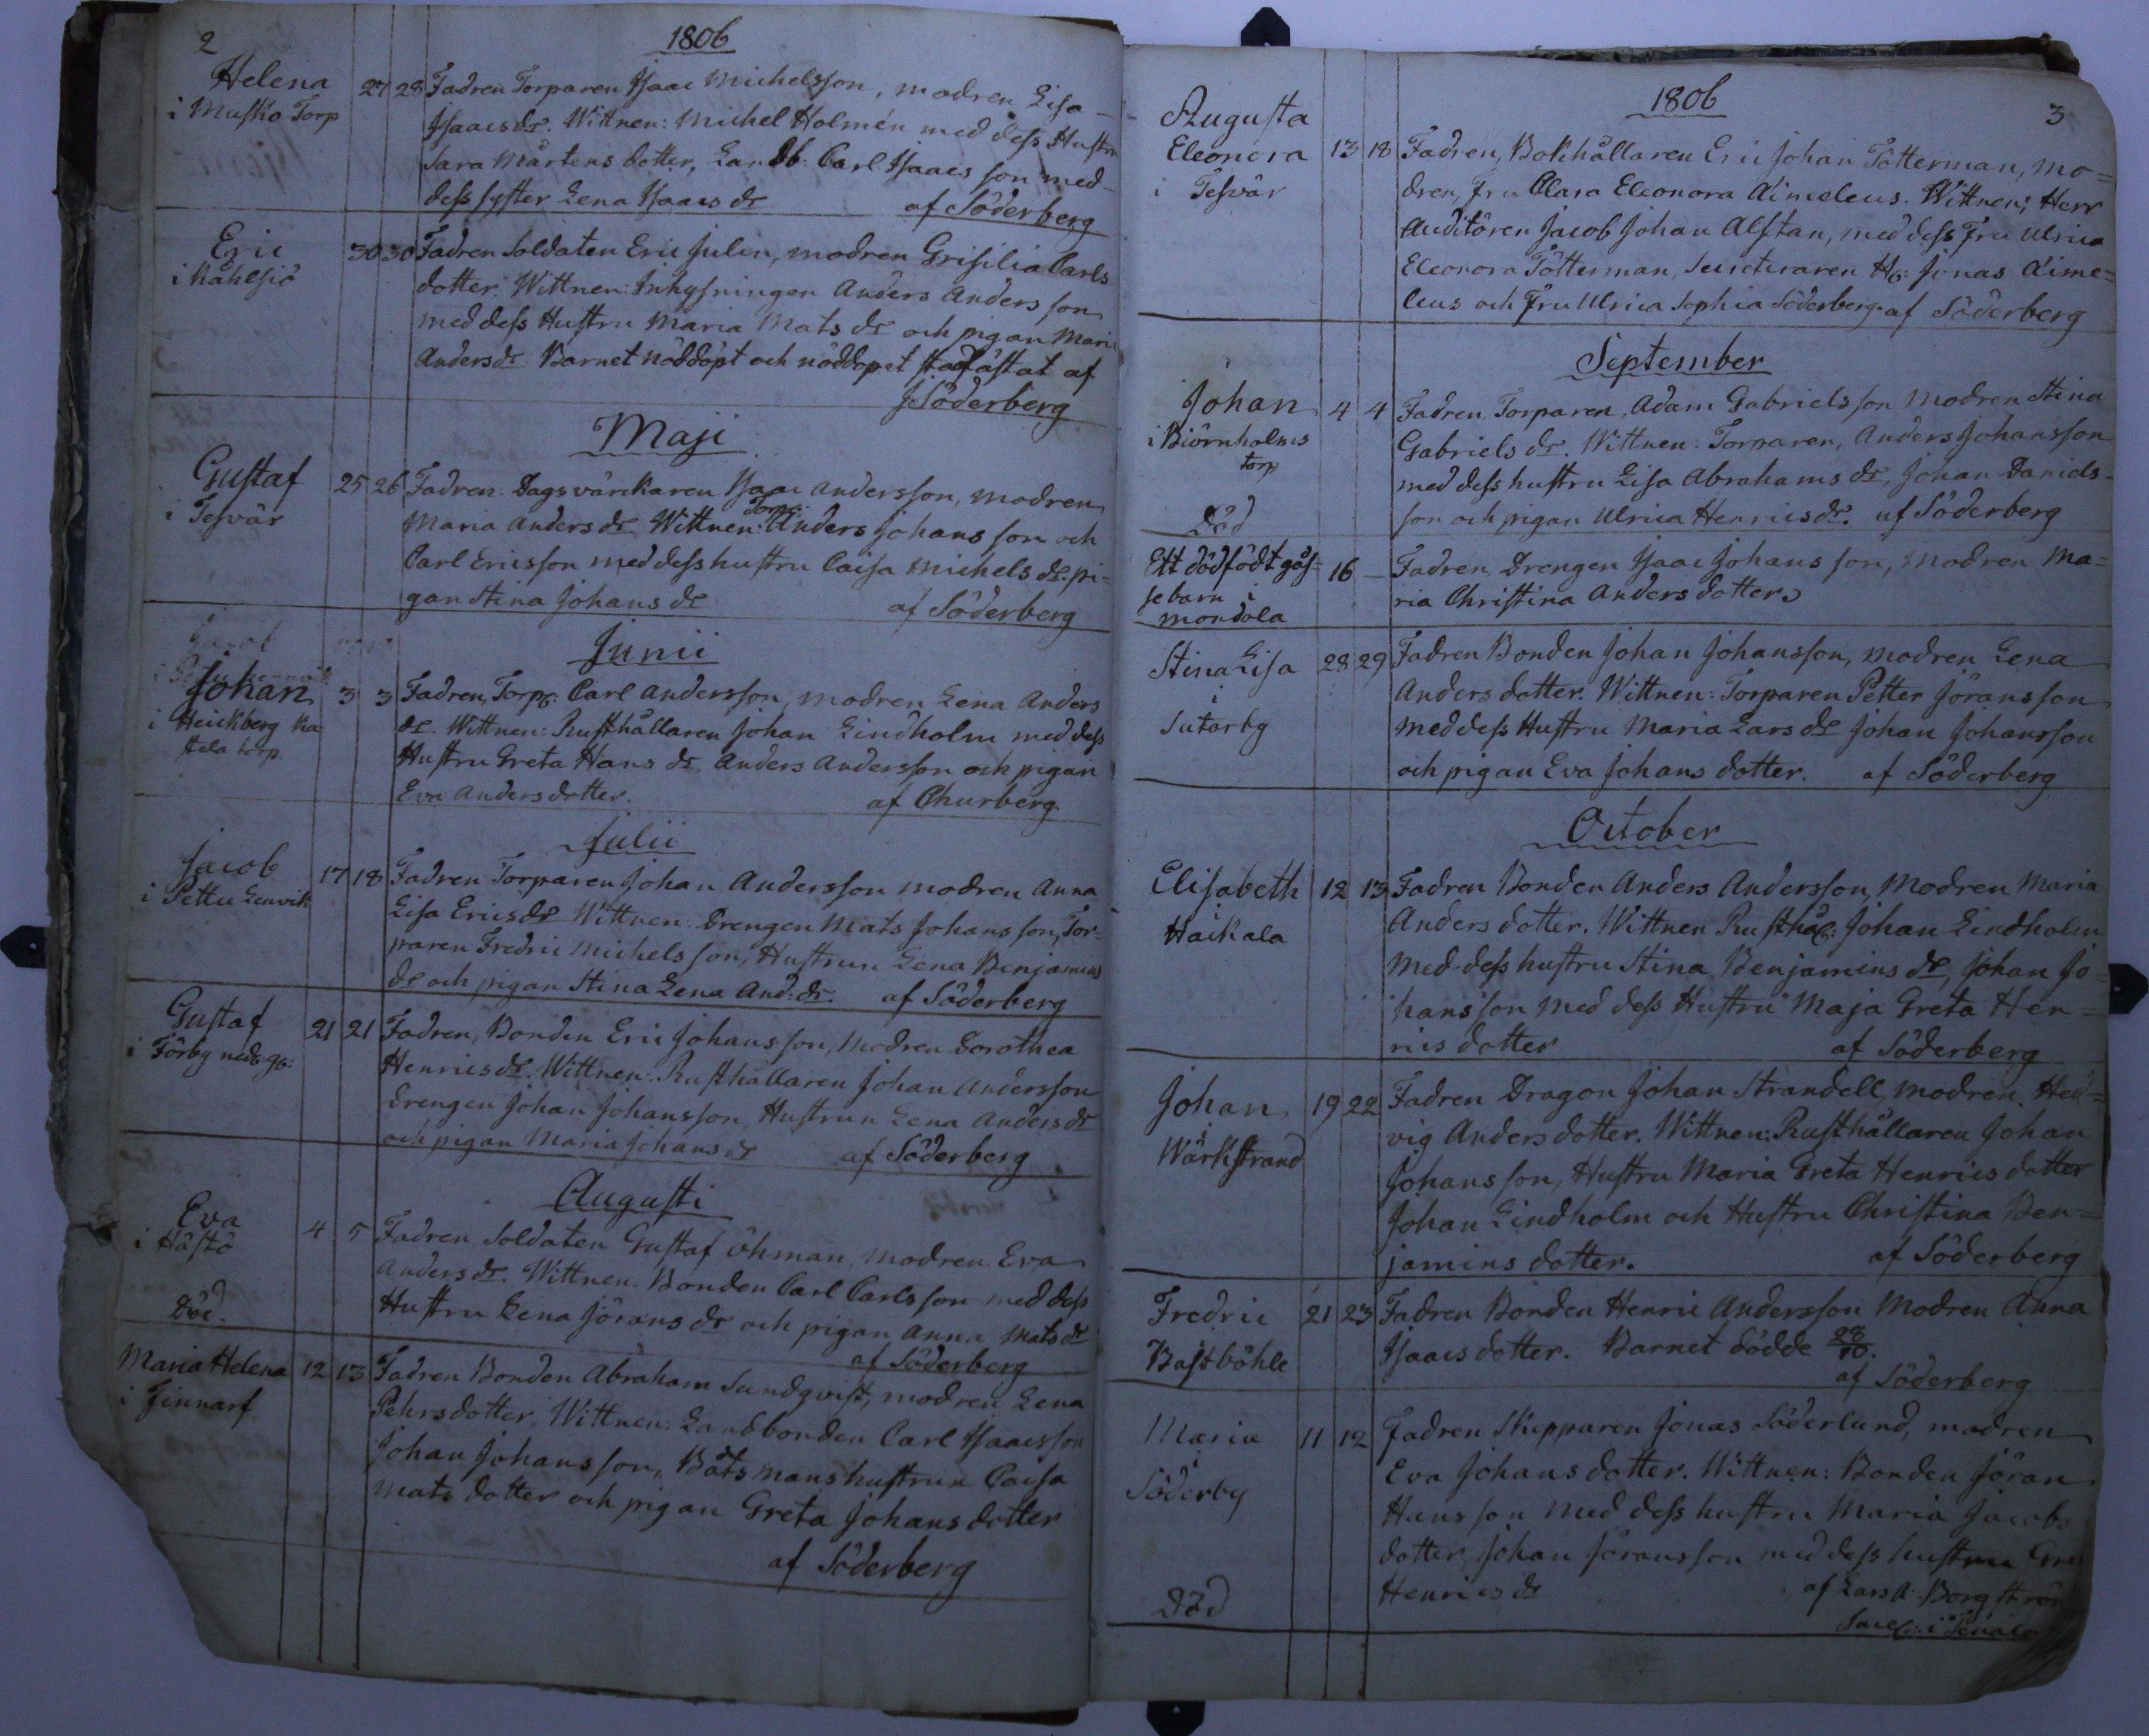 2
1806
Helena
i Musko Torp
27 28
Fadren Torparen Isaac Michelsson, modren Lisa
Isaacs dr. Wittnen: Michel Holmén med dess Hustru
Sara Mårtens dotter, Landb: Carl Isaacs son med
dess syster Lena Isaacs dr af Söderberg
Eric
30 30
Fadren Soldaten Eric Julin, modren Grisilia Carls
dotter. Wittnen: Inhysningen Anders Anders son
med dess Hustru Maria Mats dr och pigan Mari
Anders dr Barnet nöddöpt och nöddopet stadfästat af
J: Söderberg
Maji
Gustaf
i Tesvär
25 26
Fadren: Dagsvärckaren Isaac Andersson, modren
Maria Anders dr. Wittnen: Torp: Anders Johans son och
Carl Ericsson med dess hustru Caisa Michels dr. pi=
gan Stina Johans dr af Söderberg
Junii
Johan
i Heickberg Ka
stela torp.
3 3
Fadren, Torp: Carl Andersson, modren Lena Anders
dr Wittnen: Rusthållaren Johan Lindholm med dess
Hustru Greta Hans dr. Anders Andersson och pigan
Eva Anders dotter. af Churberg.
Julii
Jacob
i Pettu Lenvik
17 18
Fadren Torparen Johan Andersson modren Anna
Lisa Erics dr Wittnen: Drengen Mats Johans son, Tor=
paren Fredric Michels son, Hustrun Lena Benjamins
dr och pigan Stina Lena And: dr. af Söderberg
Gustaf
i Förby nedr. g:
21 21
Fadren, Bonden Eric Johans son, Modren Dorothea
Henrics dr. Wittnen: Rusthållaren Johan Andersson
Drengen Johan Johansson, Hustrun Lena Anders dr
och pigan Maria Johans dr af Söderberg
Augusti
Eva
i Håstö
Död.
4 5
Fadren, Soldaten Gustaf Öhman, modren Eva
Anders dr. Wittnen. Bonden Carl Carlsson med dess
Hustru Lena Jörans dr och pigan Anna Mats dr
af Söderberg
Maria Helena
i Finnarf
12 13
Fadren Bonden Abraham Sundqvist, modren Lena
Pehrs dotter, Wittnen: Landbonden Carl Isaacsson
Johan Johans son, Båtsmans hustrun Caisa
Mats dotter och pigan Greta Johans dotter
af Söderberg
1806
3
Augusta
Eleonora
i Tesvär
13 18
Fadren, Bokhållaren Eric Johan Tötterman, mo=
dren, Fru Clara Eleonora Aimeleus. Wittnen; Herr
Auditören Jacob Johan Alftan, med dess Fru Ulrica
Eleonora Tötterman, Secreteraren H: Jonas Aime=
leus och Fru Ulrica Sophia Söderberg. af Söderberg
September
Johan
i Biörnholms
torp
Död
4 4
Fadren, Torparen, Adam Gabriels son modren Stina
Gabriels dr. Wittnen: Torparen, Anders Johansson
med dess hustru Lisa Abrahams dr, Johan Daniels-
son och pigan Ulrica Henrics dr. af Söderberg
Ett dödfödt gås=
sebarn i
Mondola
16 —
Fadren, Drengen Isaac Johans son, Modren Ma=
ria Christina Anders dotter
Stina Lisa
i
Sutarby
28 29
Fadren Bonden Johan Johansson, modren Lena
Anders dotter. Wittnen: Torparen Petter Jöransson
med dess Hustru Maria Lars dr Johan Johansson
och pigan Eva Johans dotter. af Söderberg
October
Elisabeth
i
Haikala
12 13
Fadren Bonden Anders Andersson, Modren Maria
Anders dotter. Wittnen Rusthål: Johan Lindholm
med dess hustru Stina Benjamins dr, Johan Jo=
hansson med dess Hustru Maja Greta Hen=
rics dotter af Söderberg
Johan
i
Wärkstrand
19 22
Fadren Dragon Johan Strandell, modren Hed=
vig Anders dotter. Wittnen: Rusthållaren Johan
Johans son, Hustru Maria Greta Henrics dotter
Johan Lindholm och Hustru Christina Ben=
jamins dotter. af Söderberg
Fredric
i
Bastböhle
21 23
Fadren Bonden Henric Andersson Modren Anna
Isaacs dotter. Barnet dödde 28/10.
af Söderberg
Maria
i
Söderby
Död
11 12
Fadren Skepparen Jonas Söderlund, modren
Eva Johans dotter. Wittnen: Bonden Jöran
Hans son med dess hustru Maria Jacobs
dotter, Johan Jöransson med dess hustru Gre
Henrics dr af Lars A. Borgström